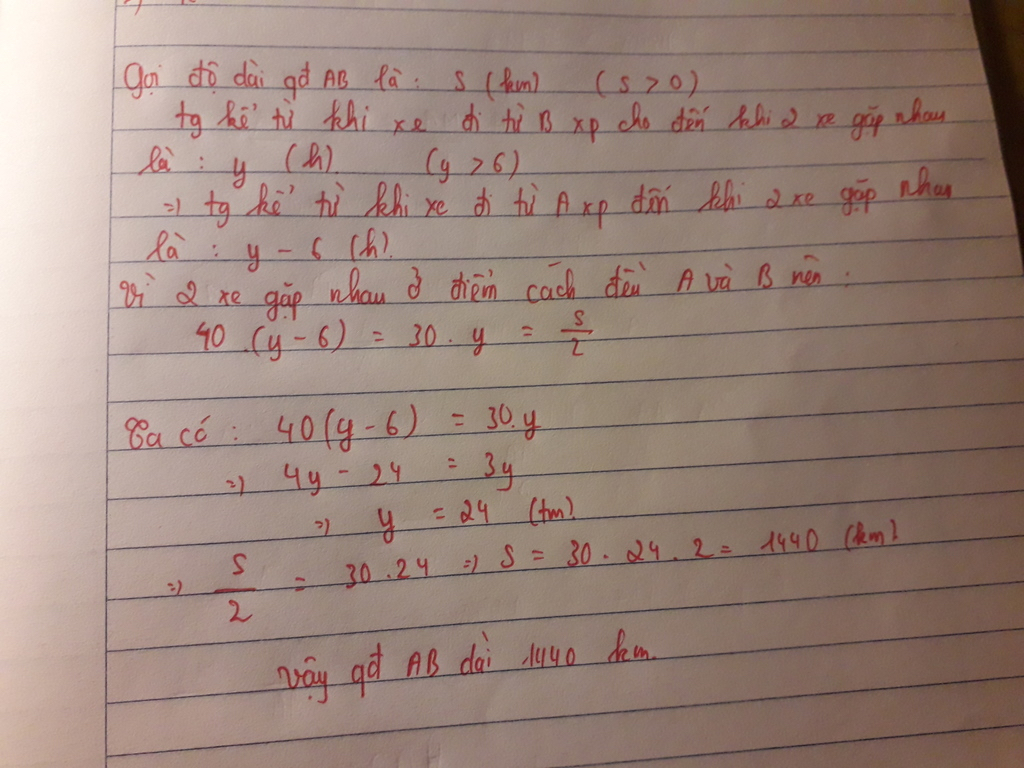 Gọi độ dài qđ AB là : S (km) (S > 0)
tg kể từ khi xe đi từ B xp cho đến khi 2 xe gặp nhau
là : y (h) (y > 6)
=> tg kể từ khi xe đi từ A xp đến khi 2 xe gặp nhau
là : y - 6 (h)
Vì 2 xe gặp nhau ở điểm cách đều A và B nên :
40 . (y - 6) = 30 . y = S/2
Ta có : 40(y - 6) = 30.y
=> 4y - 24 = 3y
=> y = 24 (tm)
=> S/2 = 30 . 24 => S = 30 . 24 . 2 = 1440 (km)
Vậy qđ AB dài 1440 km.